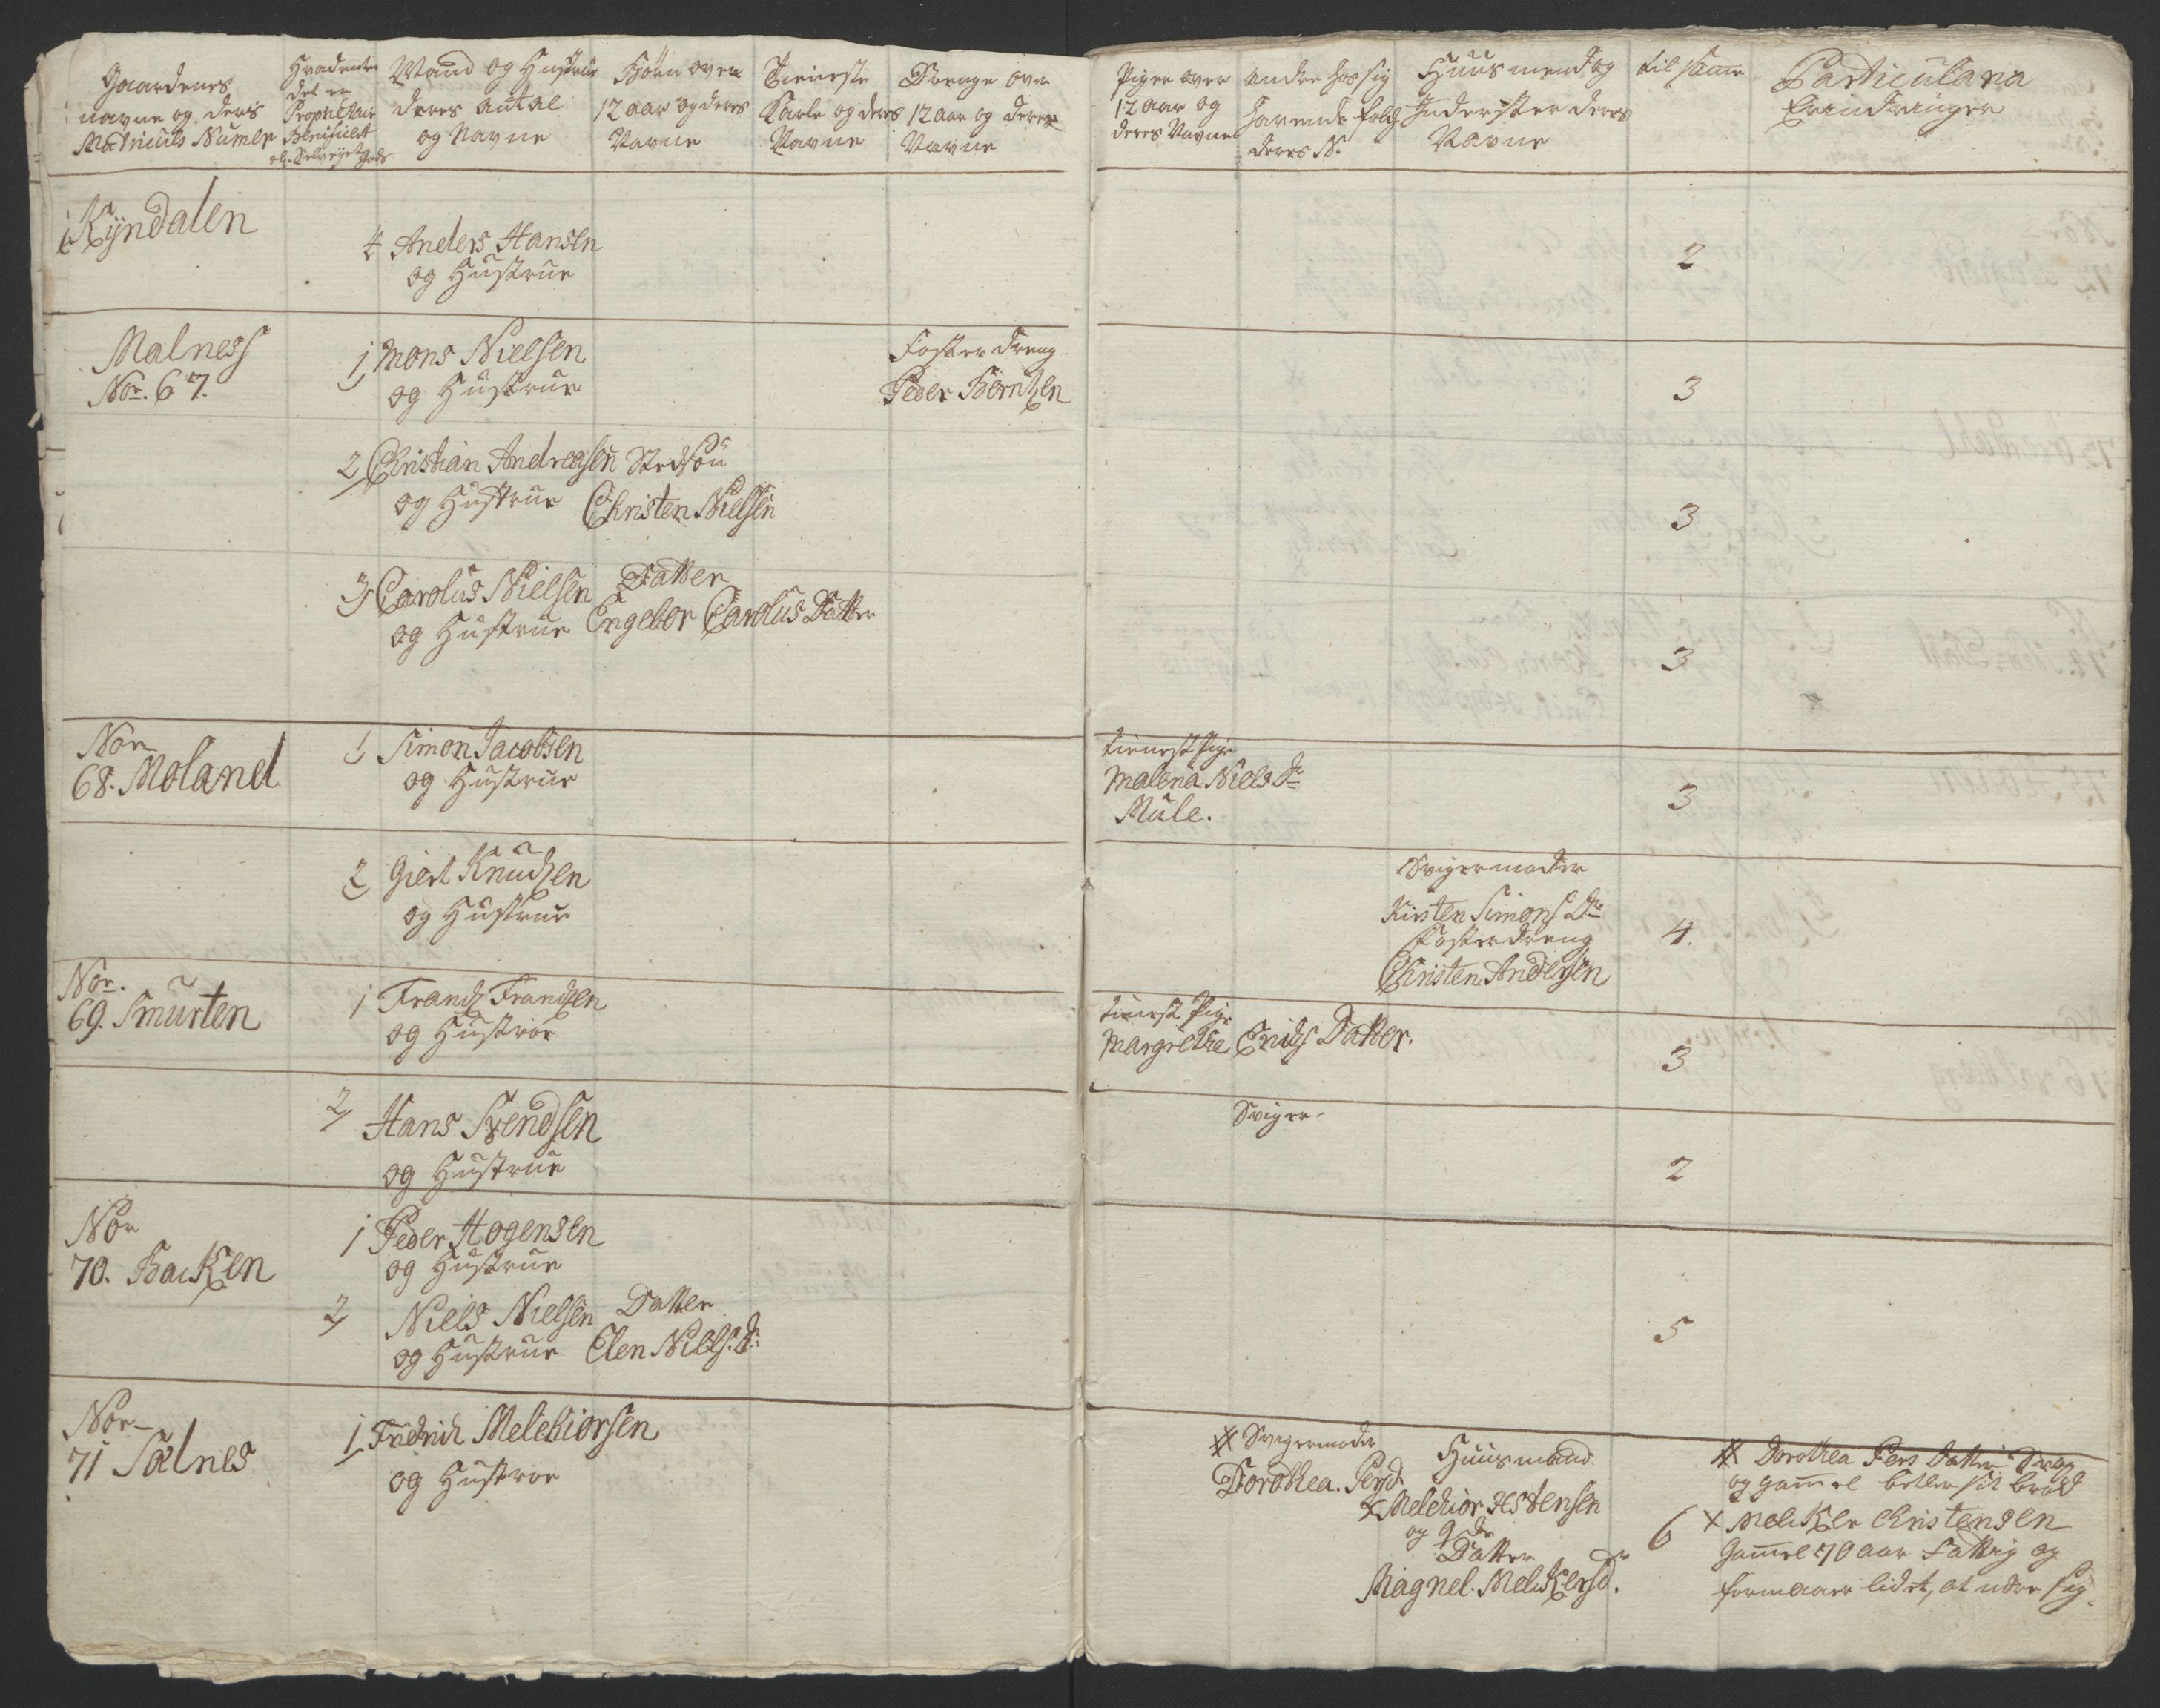 Gaardenes
navne og ders
Matriculs Numer
Hvadenten
det er
Proprietair
Benificert
elr. Selveyer Gods
Mand og Hustrue
deres antal
og Navne
Børn over
12 aar og deres
Navne
Tieneste
Karle og deres
Navne
Drenge over
12 aar og deres
Navne
Piger over
12 aar og
deres Navne
andre hos sig
havende folch
deres N.
Huusmend og
Inderster deres
Navne
til samen
Particulara
Erindringer
Kÿndalen
4 Anders Hansen
og Hustrue
2
Malness
No. 67.
1, Mons Nielsen
og Hustrue
Foster dreng
Peder Berntsen
3
2, Christian Andreasen
og Hustrue
Stedsøn
Christen Nielsen
3
3, Carolus Nielsen
og Hustrue
Datter
Engebor Carolus Datter
3
Nor
68. Moland
1, Simon Jacobsen
og Hustrue
tienest Pige
Malena Niels Dr
Mule.
3
2, Giert Knudsen
og Hustrue
Svigermoder
Kirsten Simons Dtr
foster dreng
Christen Andersen
4.
Nor.
69. Smurten
1 Frandz Frandzen
og Hustroe
tienest Pige
Margrethe Erichs Datter.
3
2, Hans Svendsen
og Hustrue
Sviger-
2
Nor
70. Backen
1 Peder Hogensen
og Hustrue
2, Niels Nielsen
og Hustrue
Datter
Elen Niels. Dr.
5
Nor
71 Sælnes
1, Fredrich Melchiorsen
og Hustroe
Svigermoder
Dorothea. Persd.
Huusmand
x Melchior
og q.de
Datter
Magnel. Melckersd.
6
Dorothea Pers Datter
og gammel betler sit brød
x Melcker Christensen
Gammel 70 aar fattig og
formaaer lidet, at nære sig.